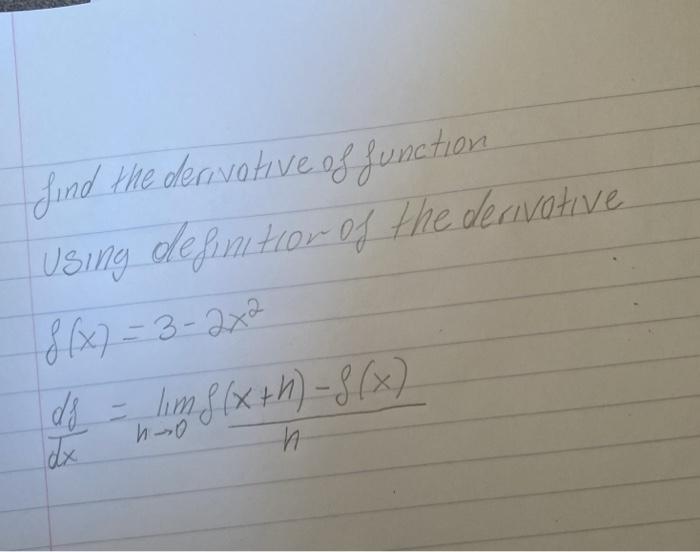 find the derivative of function
using definition of the derivative
f(x) = 3 - 2x²
df/dx = lim h→0 f(x+h) - f(x) / h